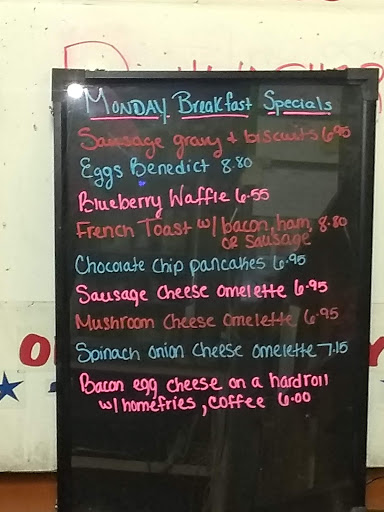 Monday Breakfast Specials
Sausage gravy + biscuits 6.95
Eggs Benedict 8.80
Blueberry Waffle 6.55
French Toast w/ bacon, ham, 8.80
or sausage
Chocolate chip pancakes 6.95
Sausage cheese omelette 6.95
Mushroom cheese omelette 6.95
Spinach onion cheese omelette 7.15
Bacon egg cheese on a hardroll
w/ homefries, coffee 6.00